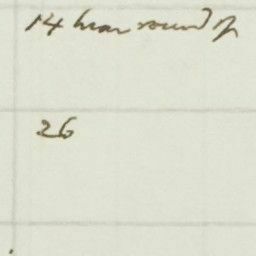 14 hour round of
26